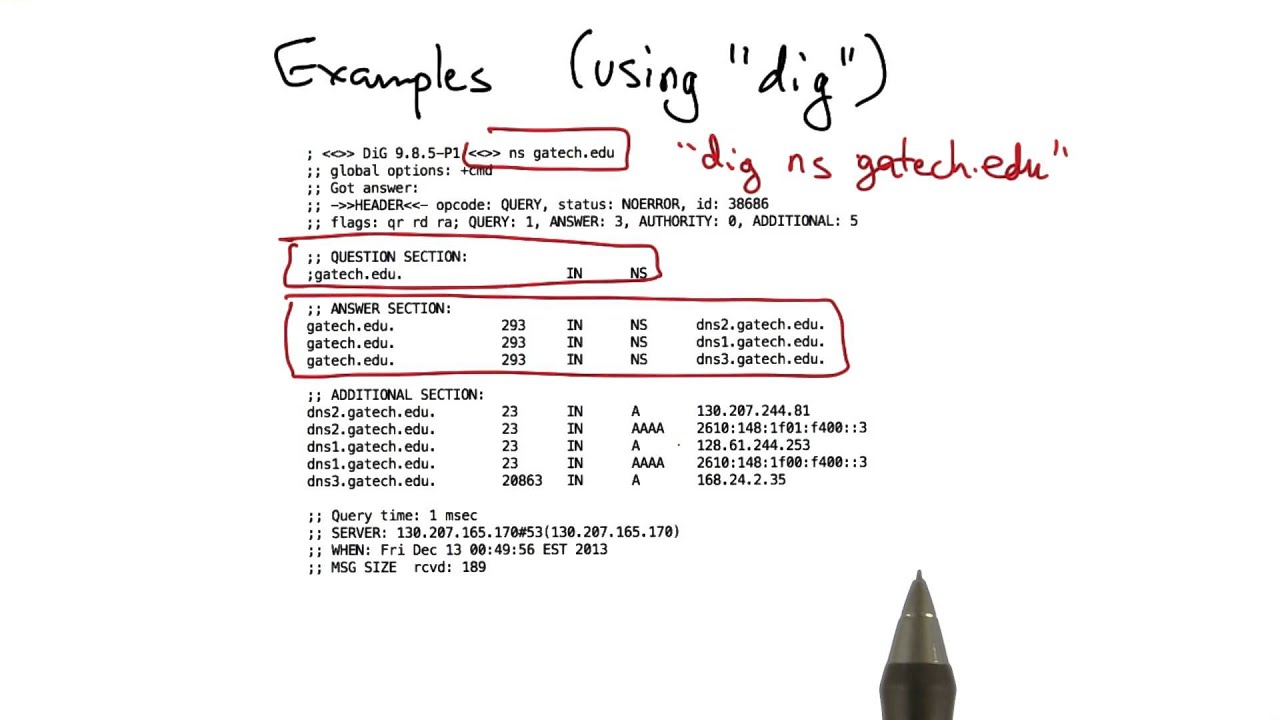 Examples (using "dig")
; <<>> DiG 9.8.5-P1 <<>> ns gatech.edu
"dig ns gatech.edu"
;; global options: +cmd
;; Got answer:
;; ->>HEADER<<- opcode: QUERY, status: NOERROR, id: 38686
;; flags: qr rd ra; QUERY: 1, ANSWER: 3, AUTHORITY: 0, ADDITIONAL: 5
;; QUESTION SECTION:
;gatech.edu. IN NS
;; ANSWER SECTION:
gatech.edu. 293 IN NS dns2.gatech.edu.
gatech.edu. 293 IN NS dns1.gatech.edu.
gatech.edu. 293 IN NS dns3.gatech.edu.
;; ADDITIONAL SECTION:
dns2.gatech.edu. 23 IN A 130.207.244.81
dns2.gatech.edu. 23 IN AAAA 2610:148:1f01:f400::3
dns1.gatech.edu. 23 IN A 128.61.244.253
dns1.gatech.edu. 23 IN AAAA 2610:148:1f00:f400::3
dns3.gatech.edu. 20863 IN A 168.24.2.35
;; Query time: 1 msec
;; SERVER: 130.207.165.170#53(130.207.165.170)
;; WHEN: Fri Dec 13 00:49:56 EST 2013
;; MSG SIZE rcvd: 189